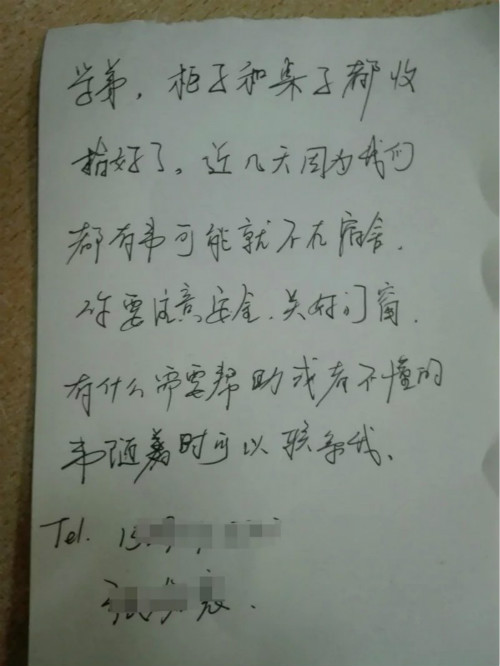 学弟，柜子和桌子都收
拾好了。近几天因为我们
都有事可能就不在宿舍．
你要注意安全．关好门窗．
有什么需要帮助或者不懂的
事随时可以联系我．
Tel.